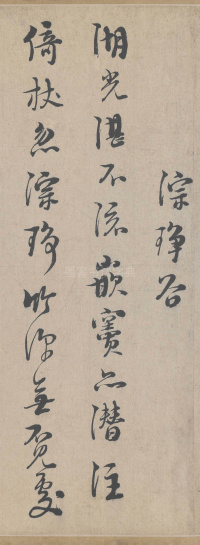 淙琤谷
湖光湛不流嵌竇亦潛注
倚杖忽淙琤竹深無覓處